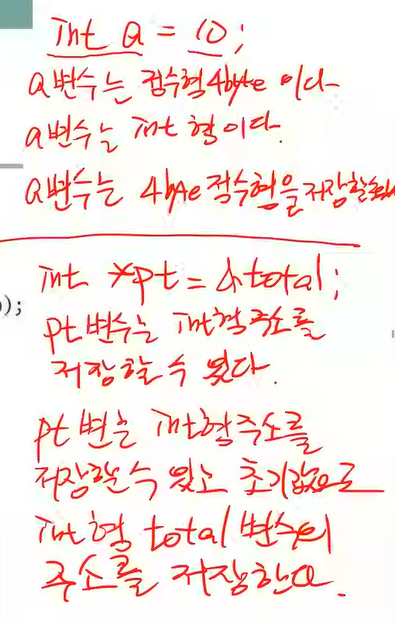 int a = 10;
a변수는 정수형 4byte 이다
a변수는 int 형이다.
a변수는 4byte 정수형을 저장할수
int *pt = &total;
);
pt 변수는 int형 주소를
저장할 수 있다.
pt 변수는 int형 주소를
저장할 수 있고 초기값으로
int형 total 변수의
주소를 저장한다.